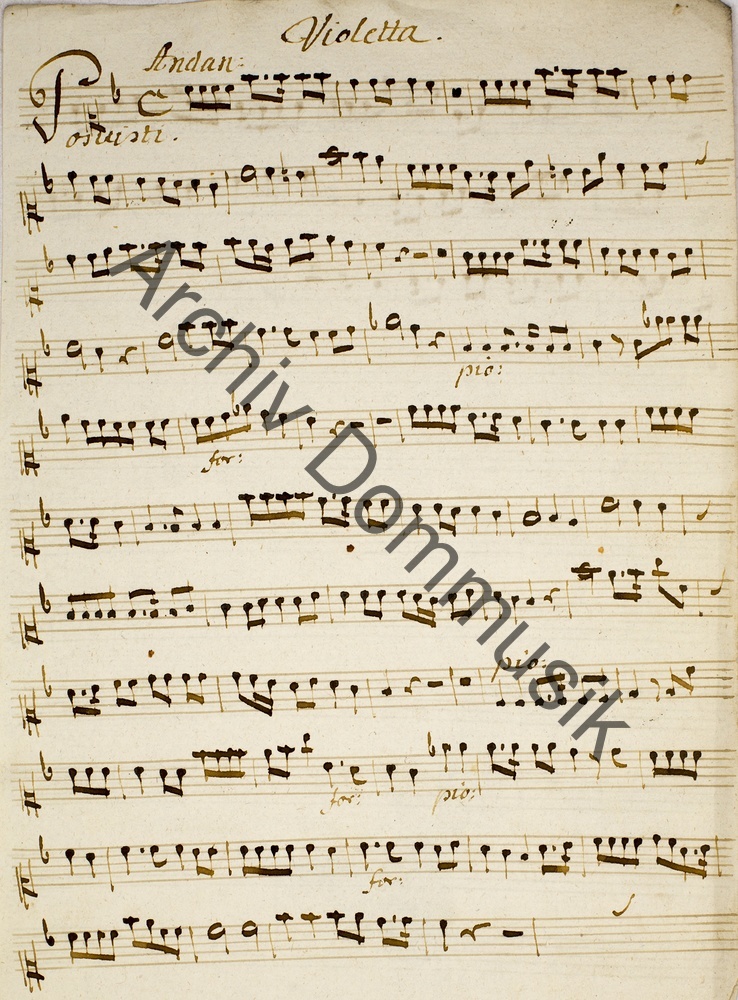 Violetta.
Andan:
Posuisti.
pio:
for:
pio:
for: pio:
for:
Archiv Dommusik